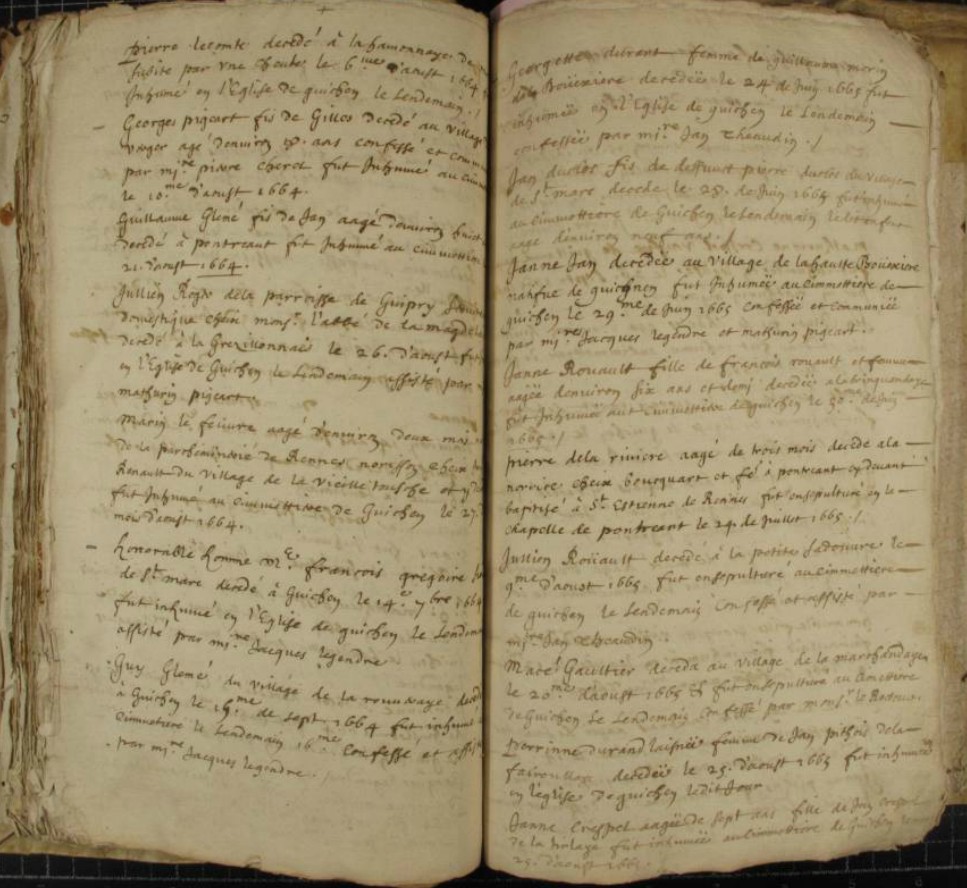 Pierre lecomte decedé à la hamonnaye de
subite par une cheute le 6me d'aoust 1664
Inhumé en l'Eglise de guichen le lendemain ./
Georges pigeart fis de Gilles decedé au village
agé d'environ ans confessé et com
par mire pierre cherel fut Inhumé au cim
le 10me d'aoust 1664.
Guillaume Glemé fis de Jan aagé d'environ huict
decedé à pontreant fut Inhumé au cimmettiere
21. d'aoust 1664.
Jullien de la parroisse de Guipry
domestique cheix monsr. l'abbé de la magdel
decedé à la Grezillonnais le 26. d'aoust fut
en l'Eglise de Guichen le lendemain assisté par
mathurin pigeart.
Marin le feuvre aagé d'environ deux mois
de la parroisse de Rennes cheix
Renault du village de la Vieille tousche et
fut Inhumé au cimmettiere de Guichen le 27.
mois d'aoust 1664.
honorable homme me. françois gregoire
de St. marc decedé à Guichen le 14e. 7bre 1664
fut inhumé en l'Eglise de guichen le lendem
assisté par mire. Jacques legendre
Guy Glemé du village de la rounraye deced
a Guichen le 15me de sept. 1664 fut inhumé
cimmetiere le lendemain 16me confesse et assis
par mire Jacques legendre
Georgette debront femme de guillaume morin
de la Bouexiere decedée le 24 de Juin 1665 fut
inhumée en l'Eglise de guichen le lendemain
confessée par mire Jan Theaudin ./
Jan duclos fis de deffunct pierre duclos du village
de St. marc decede le 28. de Juin 1665 fut inhumé
au cimmettiere de Guichen le lendemain ledit enfant
aagé d'environ neuf ans. /
Janne Jan decedée au village de la haulte Bouexiere
de guichen fut Inhumée au cimmettiere de
guichen le 29.me de Juin 1665 confessée et communiée
par mires Jacques legendre et mathurin pigeart.
Janne Rouault fille de françois rouault et femme
aagée d'environ six ans et demi decedée
fut Inhumée au cimmettiere de guichen le 30me de Juin
1665 ./
pierre de la riviere aagé de trois mois decede a la
norrice cheix boucquart et fe à pontreant cy devant
baptisé à St. Estienne de Rennes fut ensepulturé en la
chapelle de pontreant le 24. de Juillet 1665 ./
Jullien Roüault decedé à la petite le
9me d'aoust 1665 fut ensepulturé au cimmettiere
de guichen le lendemain confessé et assisté par
mire Jan Theaudin.
Macé Gaultier deceda au village de la marchandaye
le 20me d'aoust 1665 & fut ensepulturé au cimettiere
de Guichen le lendemain confessé par monsr. le Recteur.
Perrinne durand laisnée femme de Jan pithois de la
decedée le 25. d'aoust 1665 fut inhumée
en l'eglise de guichen ledit Jour
Janne Crespel aagée de sept ans fille de Jan Crespel
de la fut inhumée au cimmettiere de Guichen
25. d'aoust 1665.